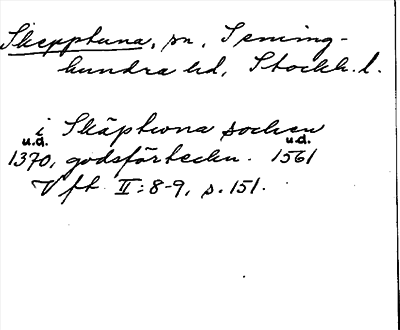 Skepptuna, sn, Seming-
hundra hd, Stockh. l.
i Skäptuna socken
u.d. u.d.
1370, godsförteckn. 1561
Vft II:8-9, s. 151.